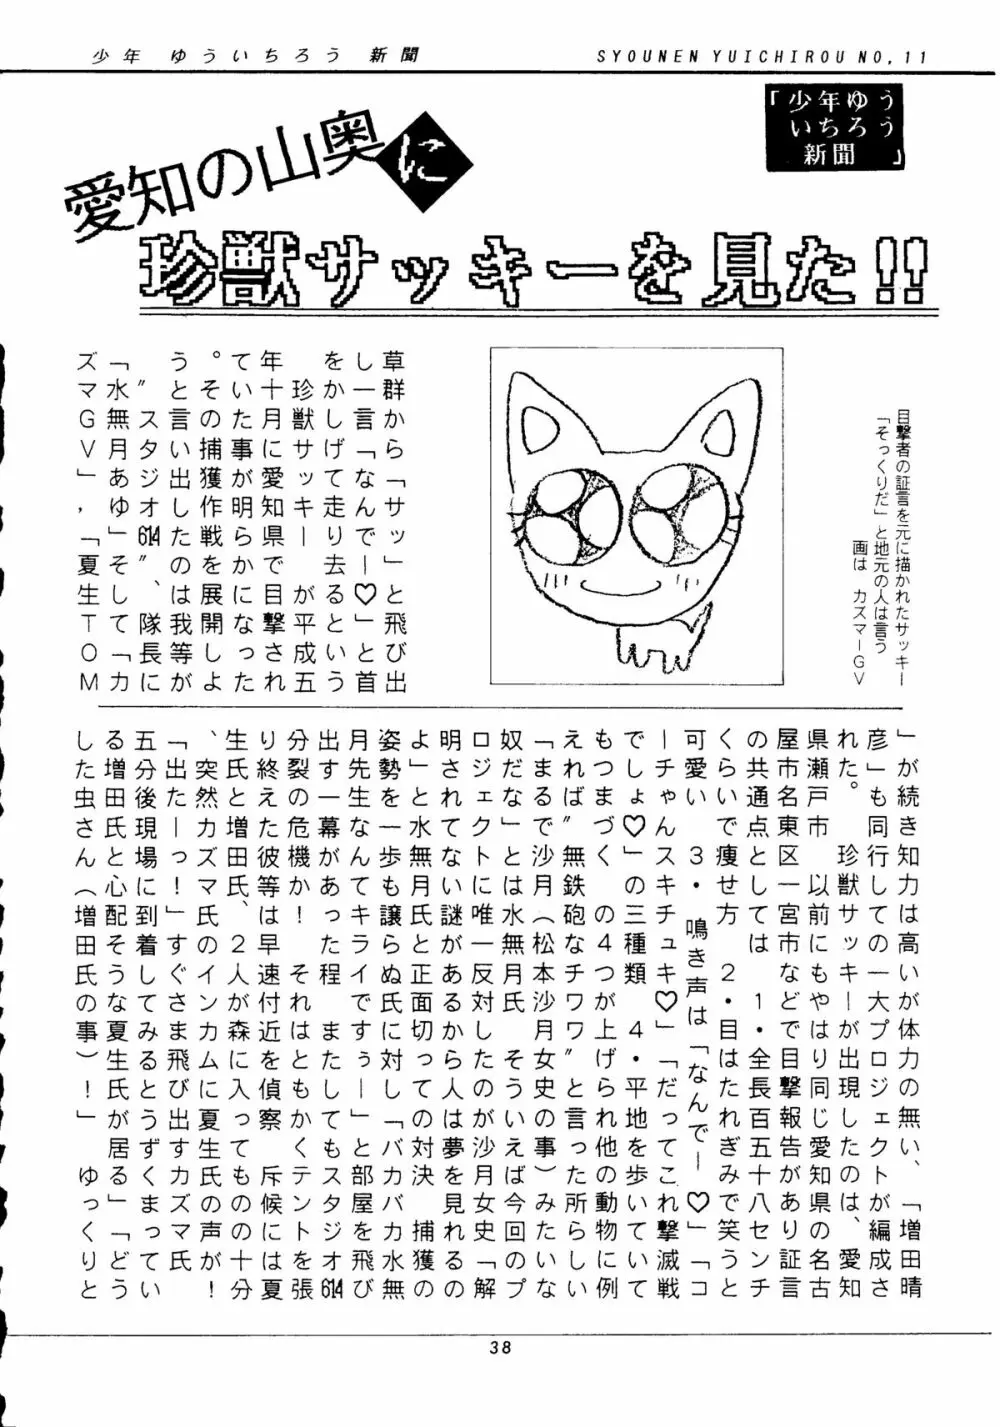 少年 ゆういちろう 新聞
SYOUNEN YUICHIROU NO,11
「少年ゆう
いちろう
新聞」
愛知の山奥に
珍獣サッキーを見た!!
目撃者の証言を元に描かれたサッキー
「そっくりだ」と地元の人は言う
画は　カズマーGV
草群から「サッ」と飛び出
し一言「なんでー♡」と首
をかしげて走り去るという
珍獣サッキー　が平成五
年十月に愛知県で目撃され
ていた事が明らかになった
。その捕獲作戦を展開しよ
うと言い出したのは我等が
〃スタジオ614〃、隊長に
「水無月あゆ」そして「カ
ズマGV」,「夏生TOM
」が続き知力は高いが体力の無い、「増田晴
彦」も同行しての一大プロジェクトが編成さ
れた。　珍獣サッキーが出現したのは、愛知
県瀬戸市　以前にもやはり同じ愛知県の名古
屋市名東区一宮市などで目撃報告があり証言
の共通点としては　1・全長百五十八センチ
くらいで痩せ方　2・目はたれぎみで笑うと
可愛い　3・鳴き声は「なんでー♡」「コ
ーちゃんスキチュキ♡」「だってこれ撃滅戦
でしょ♡」の三種類　4・平地を歩いていて
もつまづく　の4つが上げられ他の動物に例
えれば〃無鉄砲なチワワ〃と言った所らしい
「まるで沙月(松本沙月女史の事)みたいな
奴だな」とは水無月氏　そういえば今回のプ
ロジェクトに唯一反対したのが沙月女史「解
明されてない謎があるから人は夢を見れるの
よ」と水無月氏と正面切っての対決　捕獲の
姿勢を一歩も譲らぬ氏に対し「バカバカ水無
月先生なんてキライですぅー」と部屋を飛び
出す一幕があった程　またしてもスタジオ614
分裂の危機か!　それはともかくテントを張
り終えた彼等は早速付近を偵察　斥候には夏
生氏と増田氏、2人が森に入ってものの十分
、突然カズマ氏のインカムに夏生氏の声が!
「出たーっ!」すぐさま飛び出すカズマ氏
五分後現場に到着してみるとうずくまってい
る増田氏と心配そうな夏生氏が居る」「どう
した虫さん(増田氏の事)!」　ゆっくりと
38